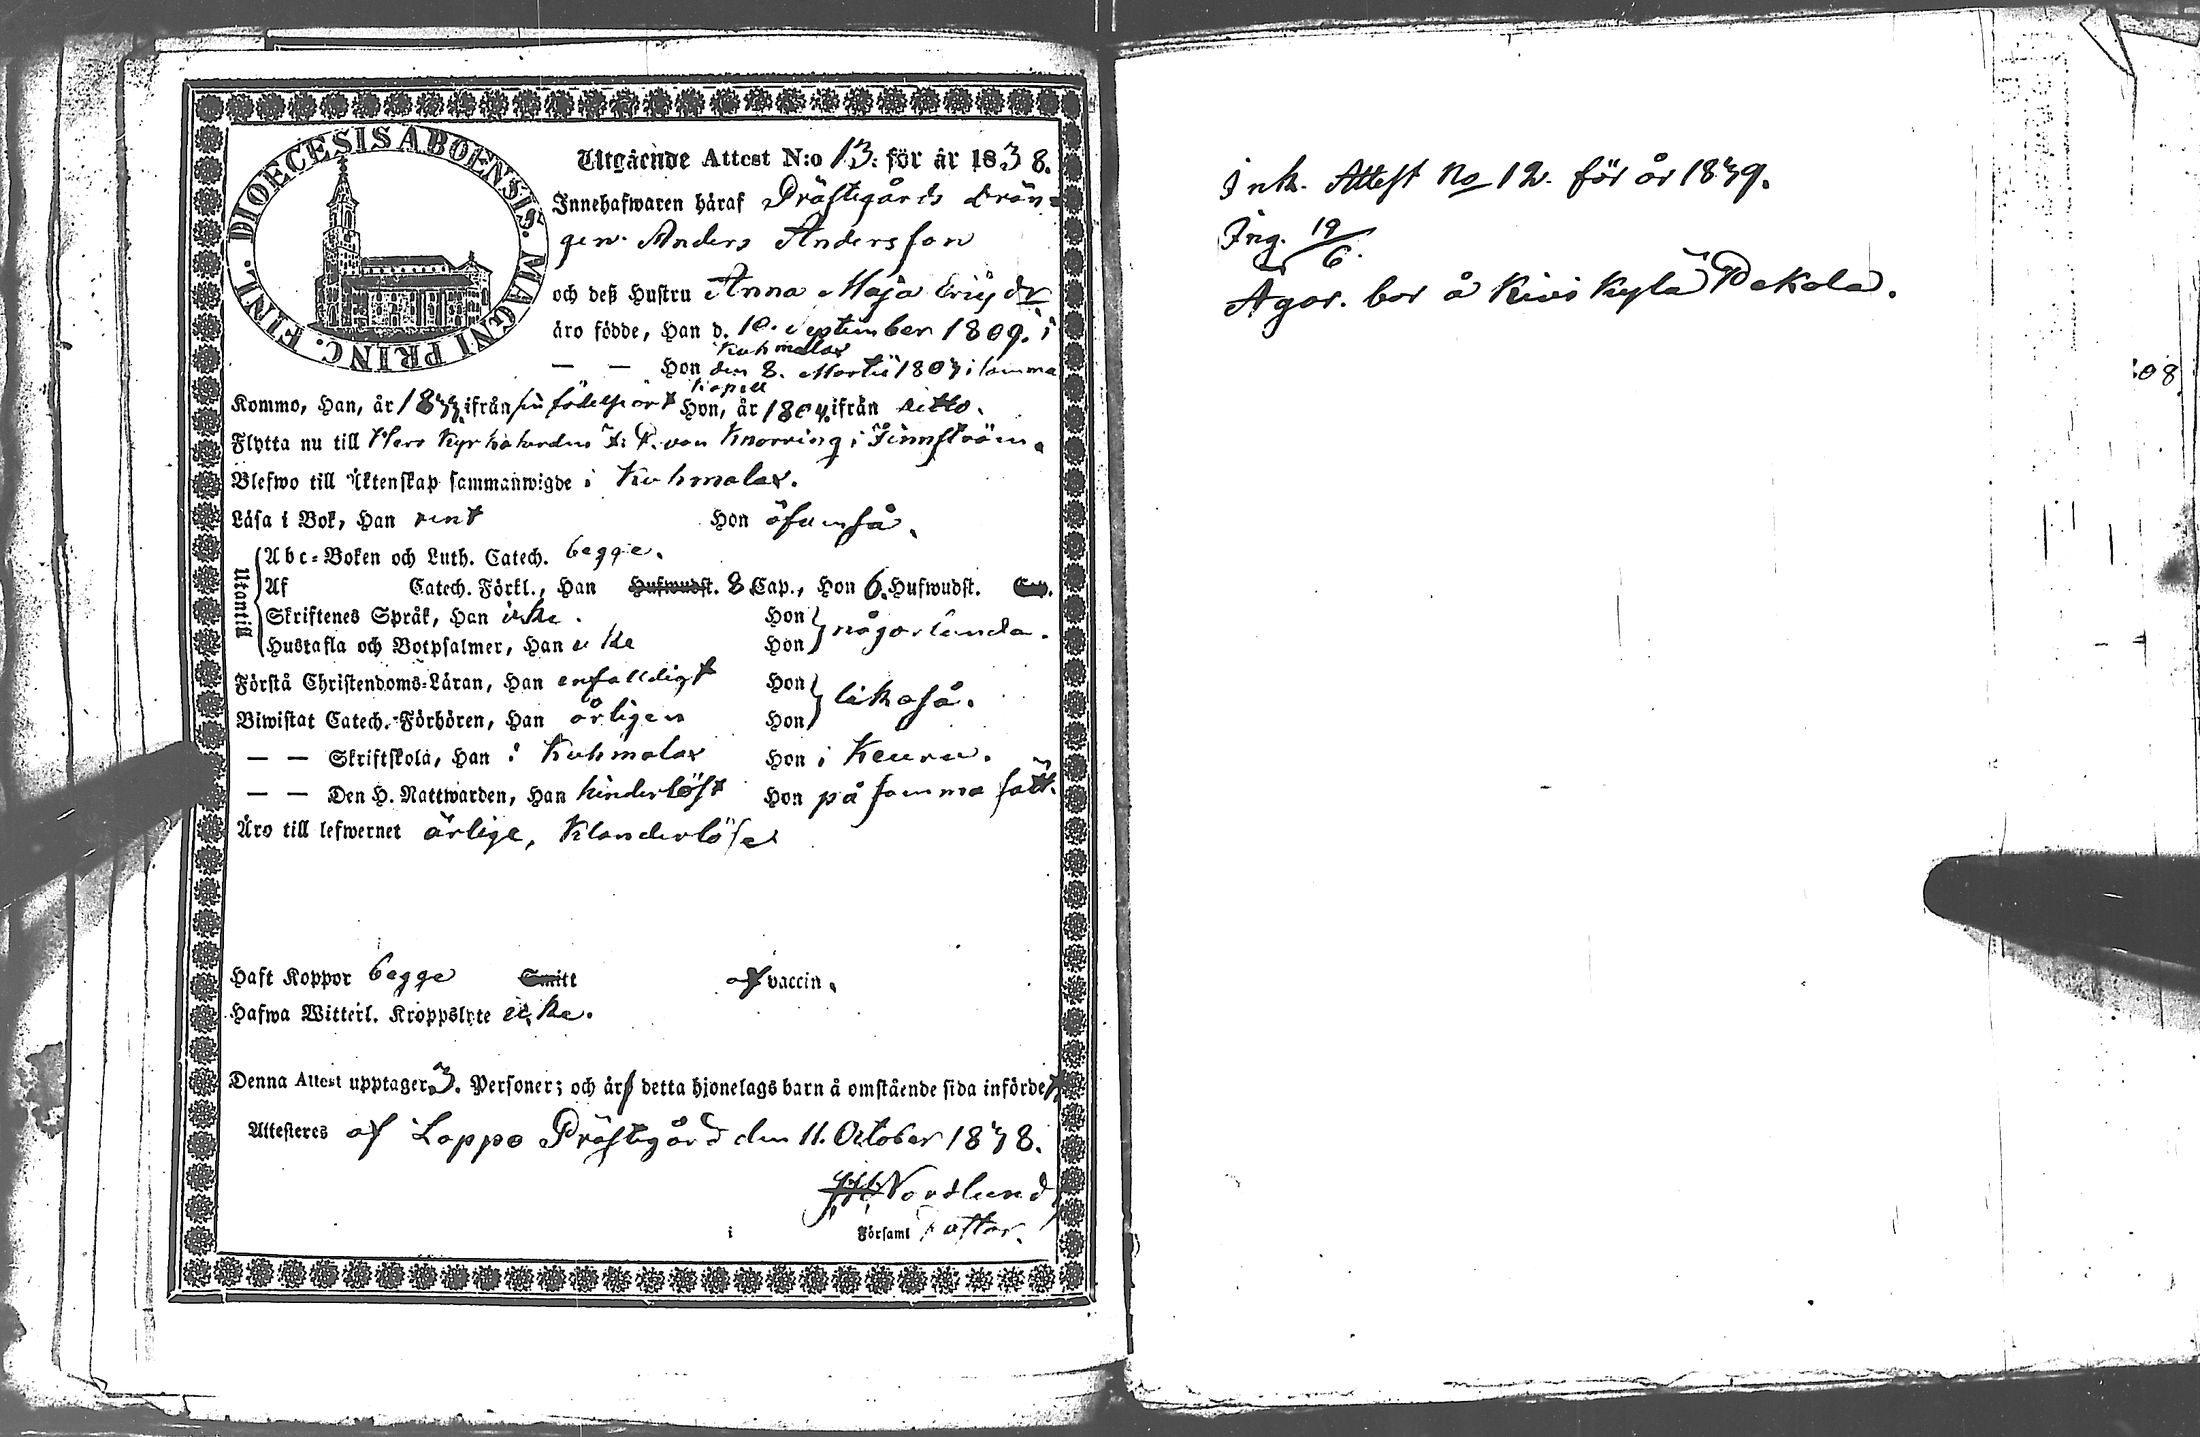 DIOECESIS ABOENSIS. MAGNI PRINC. FINL.
Utgående Attest N:o 13. för år 1838.
Innehafwaren håraf Prästgårds drän-
gen Anders Andersson
och deß Hustru Anna Maja Ericsdr
äro födde, Han d. 10. September 1809. i
Kuhmalax
— — Hon den 8. Martii 1807 i samma
Kapell
Kommo, Han, år ifrån sin födelseort Hon, år ifrån ditto.
Flytta nu till Herr Kyrkoherden von Knorring i
Blefwo till Äktenskap sammanwigde i Kuhmalax.
Läsa i Bok, Han rent Hon äfvenså.
Utantill
Abc-Boken och Luth. Catech. begge.
Af Catech. Förkl., Han Hufwudst. 8 Cap., Hon 6. Hufwudst. Cap.
Skriftenes Språk, Han icke. Hon någorlunda.
Hustafla och Botpsalmer, Han icke Hon
Förstå Christendoms-Läran, Han enfaldigt Hon likaså.
Biwistat Catech.-Förhören, Han årligen Hon
— — Skriftskola, Han i Kuhmalax Hon i Keuru.
— — Den H. Nattwarden, Han hinderlöst Hon på samma sätt.
Äro till lefwernet ärlige, Klanderlöse
Haft Koppor begge Smitt af vaccin.
Hafwa Witterl. Kroppslyte icke.
Denna Attest upptager 3. Personer; och är detta hjonelags barn å omstående sida infördt
Attesteres af Loppo Prästegård den 11. October 1838.
Nordlund
Församl Pastor.
Ink. Attest No 12. för år 1839.
Ing. 19/6.
Agar. bor å Kivikylä Pekola.
108